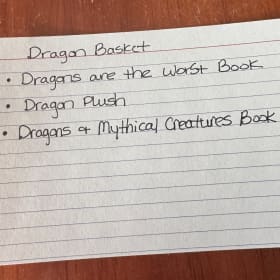 Dragon Basket
• Dragons are the Worst Book
• Dragon Plush
• Dragons & Mythical Creatures Book